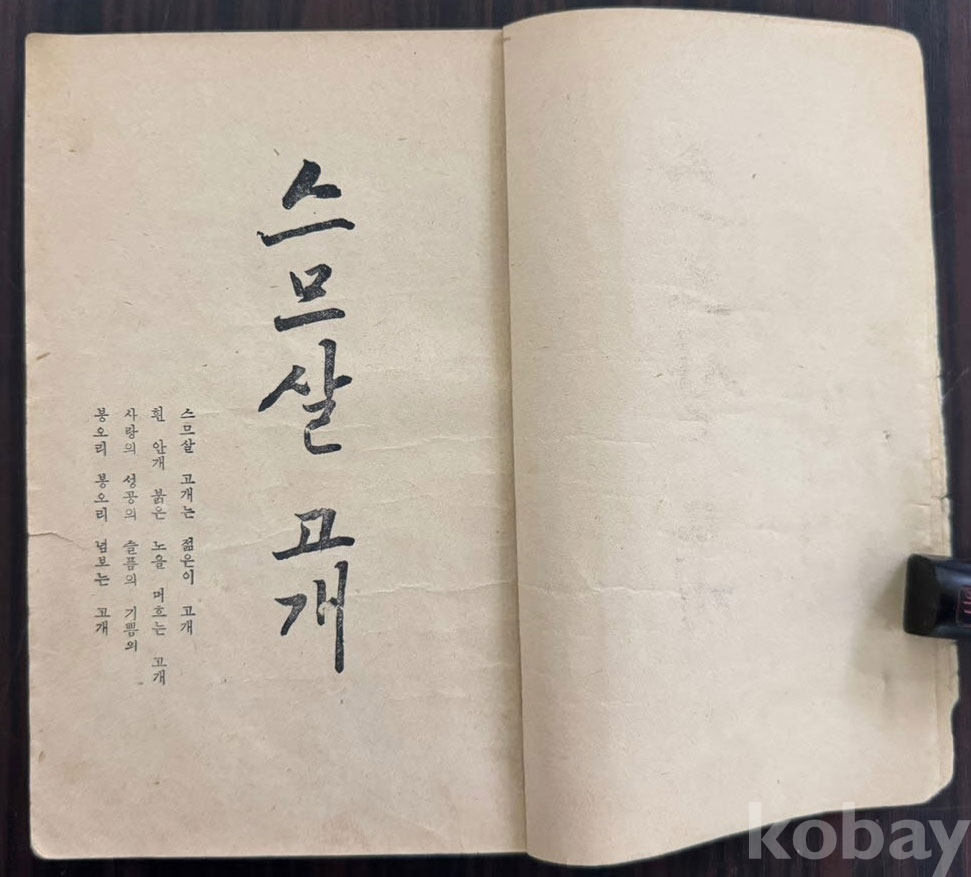 스므살 고개
스므살 고개는 젊은이 고개
흰 안개 붉은 노을 머흐는 고개
사랑의 성공의 슬픔의 기쁨의
봉오리 봉오리 넘보는 고개
kobay